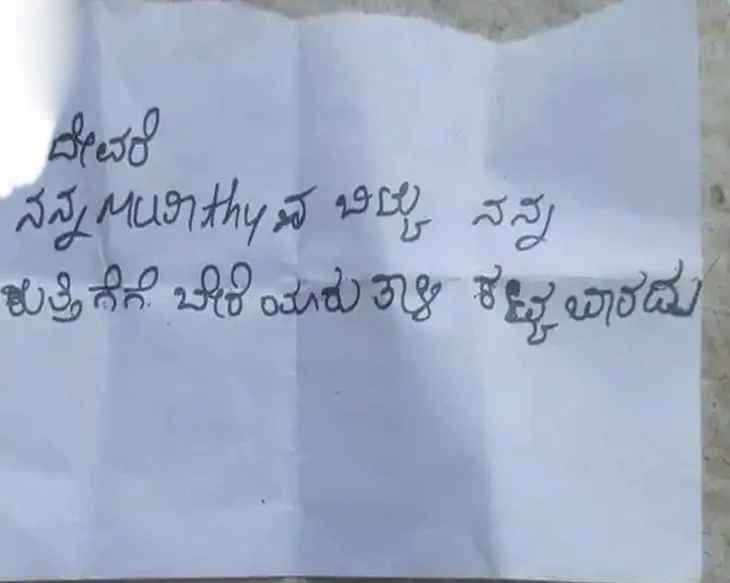 ದೇವರೆ
ನನ್ನ Murthy ನ ಬಿಟ್ಟು ನನ್ನ
ಕುತ್ತಿಗೆಗೆ ಬೇರೆ ಯಾರು ತಾಳಿ ಕಟ್ಟಬಾರದು